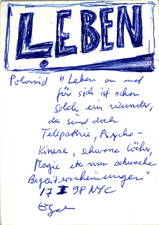 LEBEN
Polaroid "Leben an und
für sich ist schon
solch ein Wunder,
da sind doch
Telepathie, Psycho-
Kinese, schwarze Löcher,
Magie etc nur schwache
Begleiterscheinungen"
17 I 98 NYC